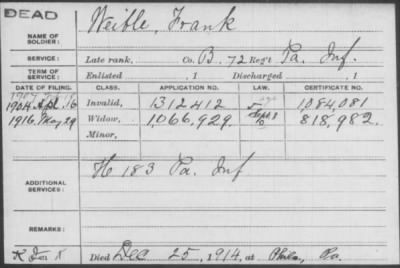 DEAD
NAME OF SOLDIER: Weible, Frank
SERVICE: Late rank, Co. B, 72 Reg't Pa. Inf.
TERM OF SERVICE: Enlisted , 1 Discharged , 1
DATE OF FILING. CLASS. APPLICATION NO. LAW. CERTIFICATE NO.
1904 Apl. 16 Invalid, 1312412 1,084,081
1916, May 29 Widow, 1,066,929. Sept 8 818,982.
Minor,
ADDITIONAL SERVICES: H 183 Pa. Inf
REMARKS:
Died Dec 25, 1914, at Phila, Pa.